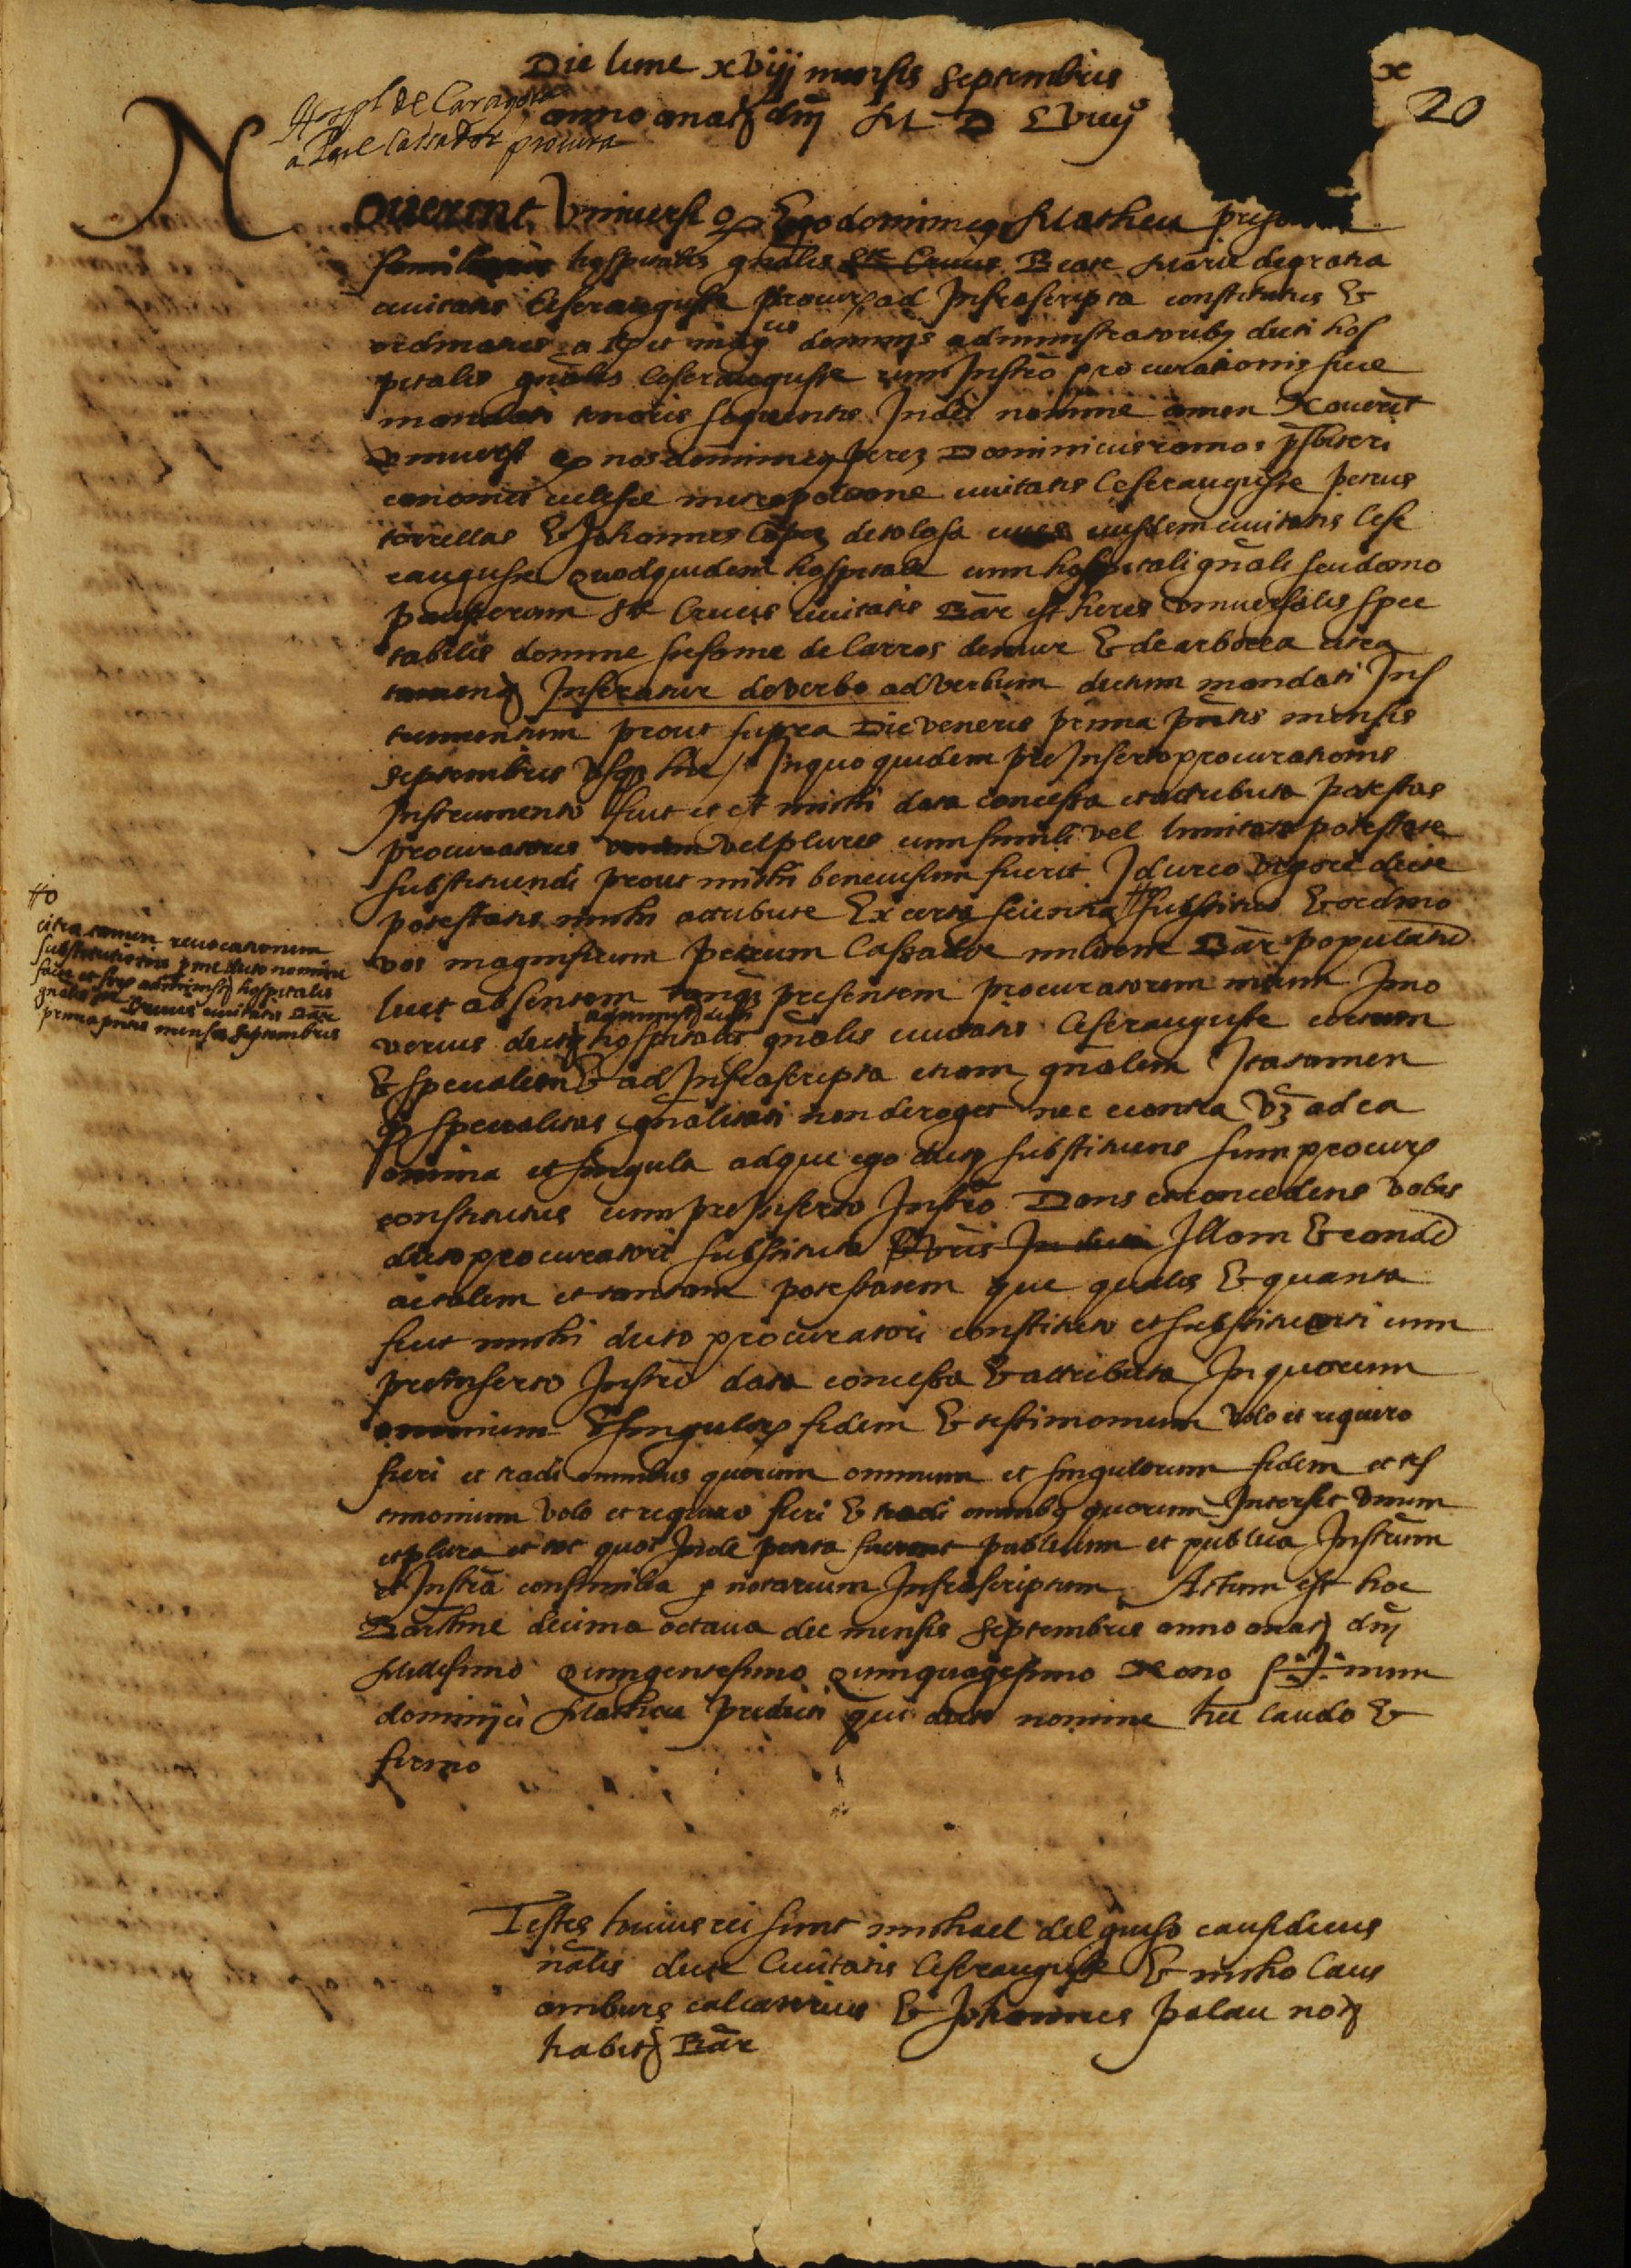 x
20
Die lune xviij mensis septembris
anno a nat dnj M D Lviiij
Hospl de Caragoca
a Pere Cassador procura
Nouerint Vniuersi q Ego dominicus Matheu
hospitalis gnalis Ste Crucis Beate Marie de gratia
ciuitatis Cesarauguste procur ad Infrascripta constitutus &
ordinatus a et mag cis dominis administratoribus dicti hos
pitalis gnalis Cesarauguste cum Instro procurationis siue
mandati tenoris sequentis In dei nomine amen Nouerint
vniuersi q nos dominicus perez Dominicus ramos psbiteri
canonici eclesie metropolitane ciuitatis Cesarauguste petrus
torrellas & Johannes lopez de tolosa ciues eiusdem ciuitatis Cesar
auguste Quod quidem hospitale cum hospitali gnali seu domo
pauperum Ste Crucis ciuitatis Bar est heres vniuersalis spec
tabilis domine de larros & de arborea
Inseratur de verbo ad verbum dictum mandati Ins
trumentum prout supra Die veneris prima pntis mensis
septembris vsq huc / In quo quidem pre Inserto procurationis
Instrumento fuit et est michi data concessa et attributa potestas
procuratores vnum vel plures cum simili vel limitata potestate
substituendi prout michi bene visum fuerit Idcirco vigore dicte
potestatis michi attribute Ex certa scientia # substituo & ordino
vos magnificum petrum Cassador militem Bar populatum
licet absentem tanq presentem procuratorem meum Imo
verius dicti administ dicti hospitalis gnalis ciuitatis Cesarauguste certum
& specialem & ad Infrascripta etiam gnalem Ita tamen
q specialitas gnalitati non deroget nec econtra vz ad ea
omnia et singula ad que ego dictus substituens sum procur
constitutus cum pre Inserto Instro Dans et concedens vobis
dicto procuratori substituto Illam & eandem
ac talem et tantam potestatem que qualis & quanta
fuit michi dicto procuratori constituto et substituenti cum
pre Inserto Instro data concessa & attributa In quorum
omnium & singulor fidem & testimonium volo et requiro
fieri et tradi omnibus quorum omnium et singulorum fidem et tes
timonium volo et requiro fieri & tradi omnibus quorum Intersit vnum
et plura et tot quot Inde petita fuerint publicum et publica Instrum
et Instra consimilia p notarium Infrascriptum Actum est hoc
Barchne decima octaua die mensis septembris anno a nat dnj
Millesimo Quingentesimo Quinquagesimo Nono Sig+num
dominici Matheu predicti qui dicto nomine hec laudo &
firmo
#o
citra tamen reuocationem
substitutionis p me dicto nomine
facte administ hospitalis
gnalis ste Crucis ciuitatis Bar
prima pntis mensis septembris
Testes huius rei sunt michael del causidicus
dicte Ciuitatis Cesarauguste &
& Johannes palau not
habit Bar